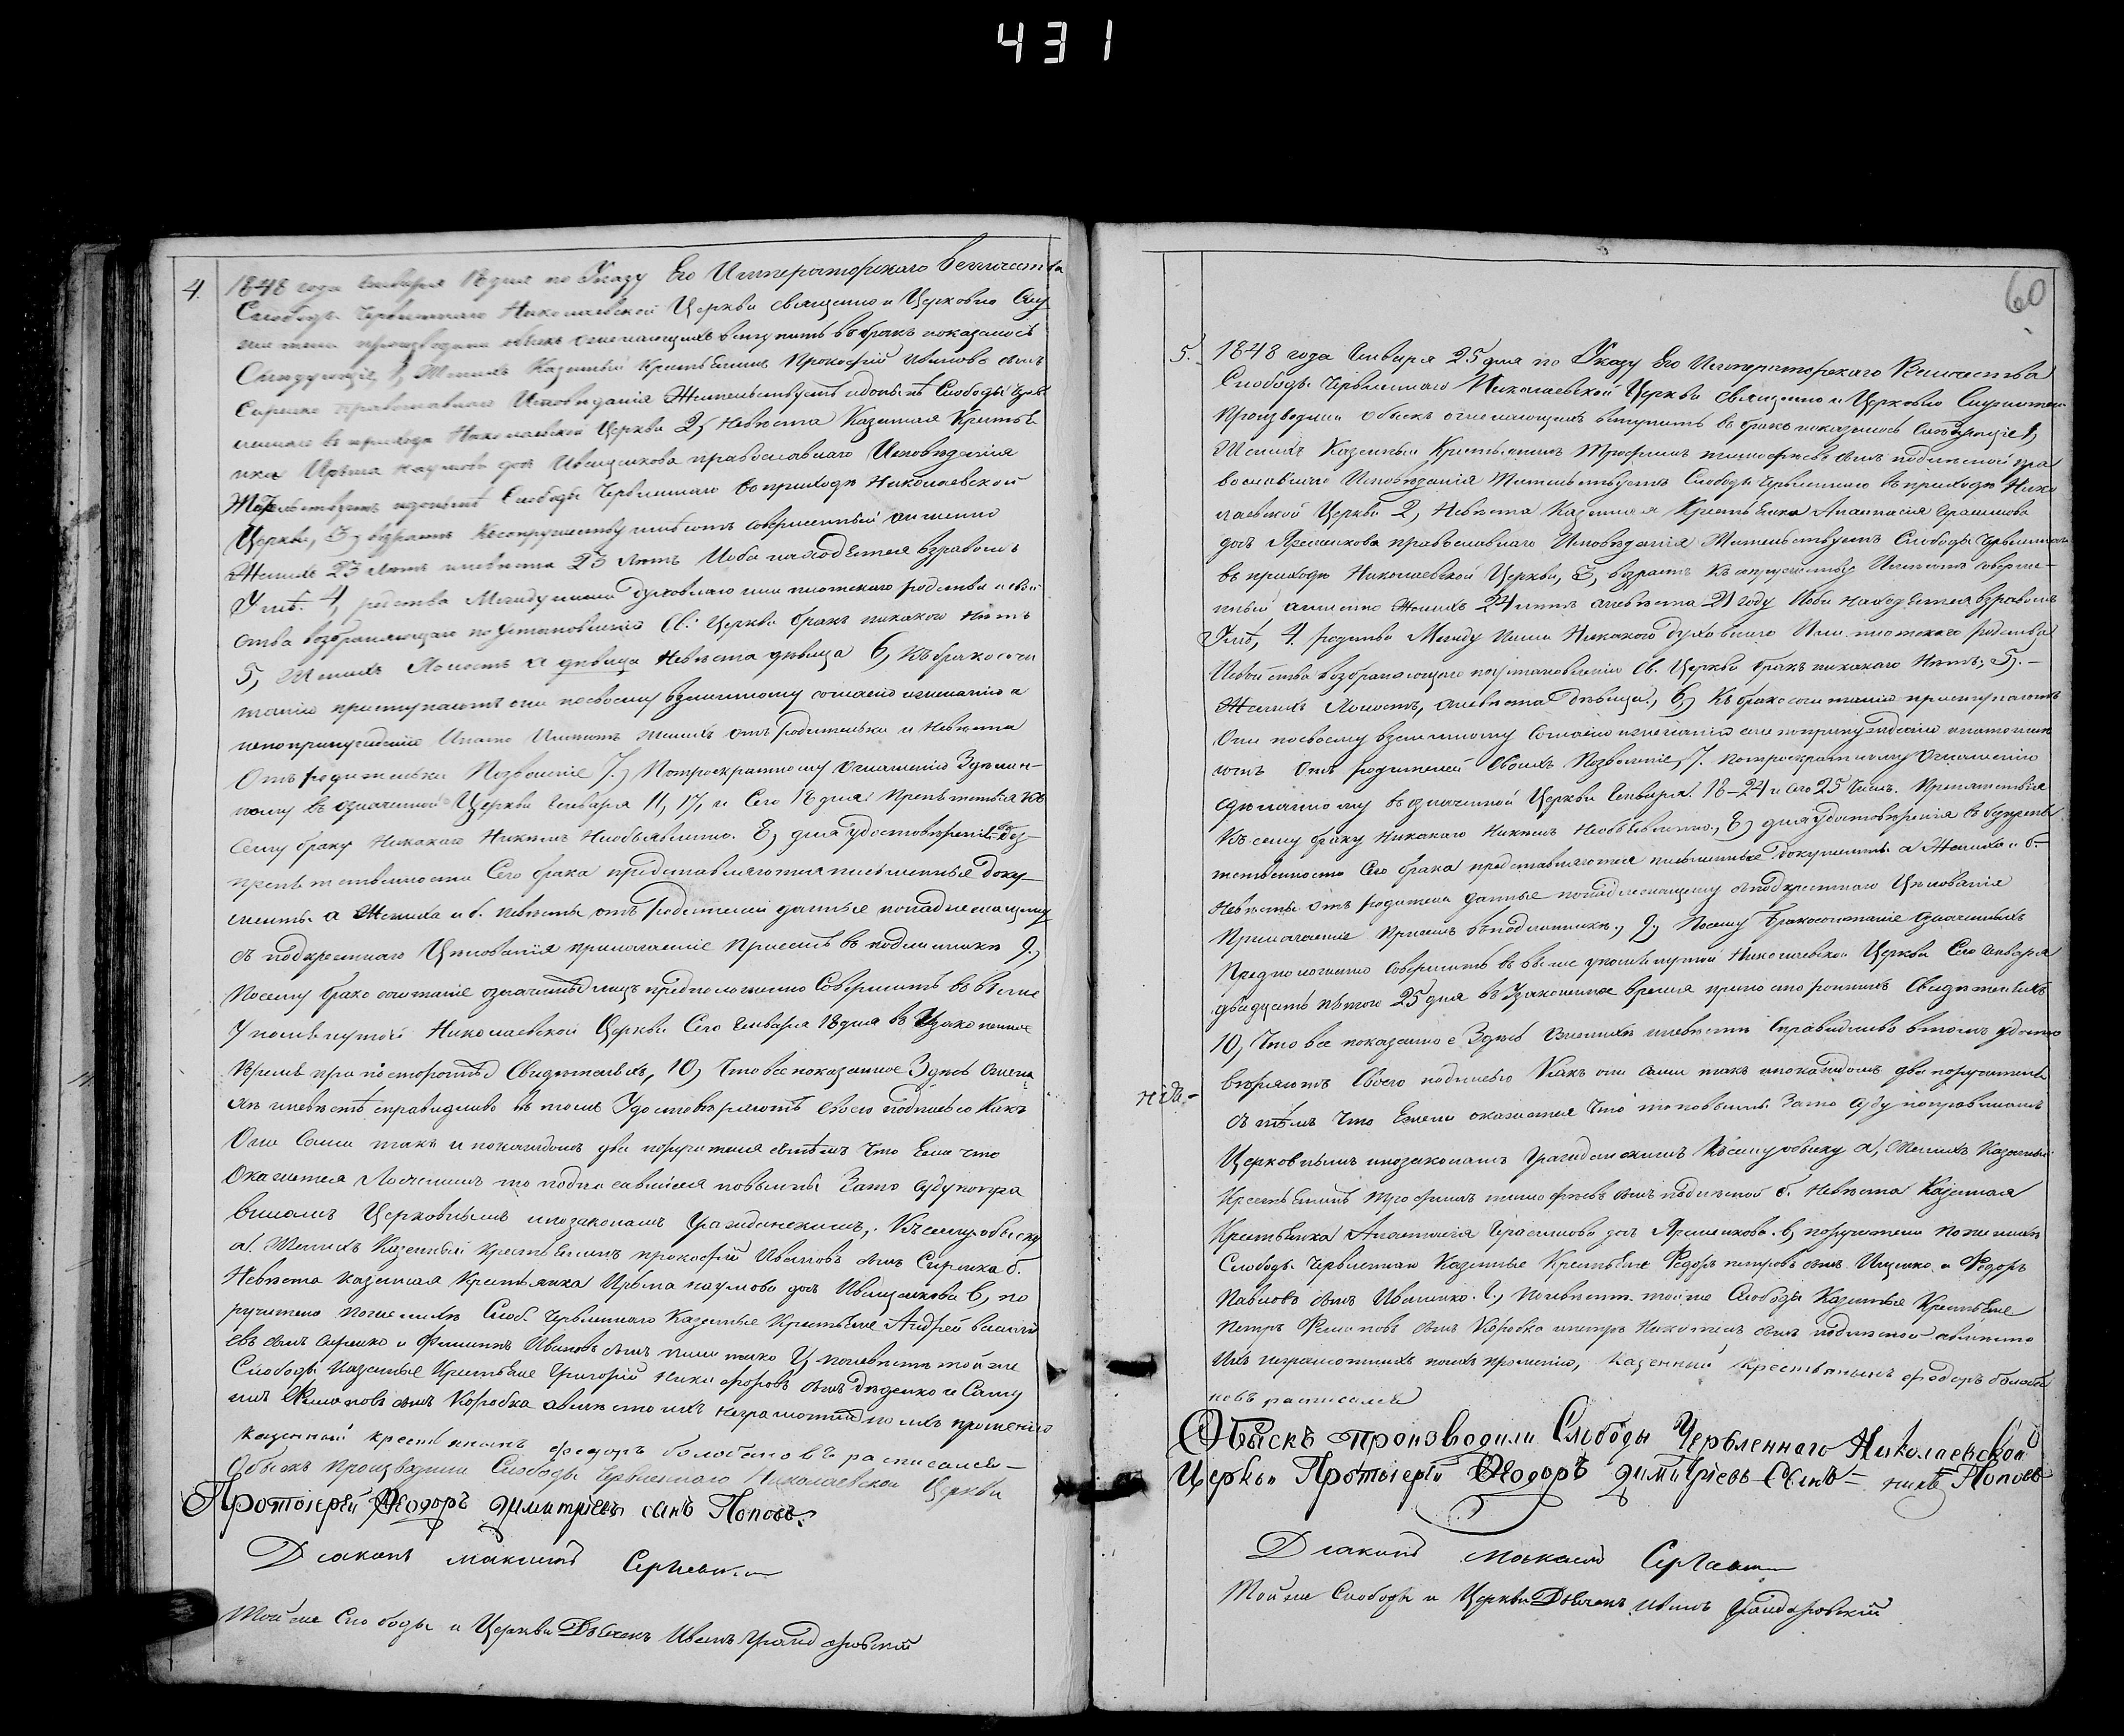 431
4. 1848 года Генваря 18 дня по Указу Его Императорскаго Величества
Слободы Червленнаго Николаевской Церкви священно и Церковно слу
жители производили обыскъ о желающихъ вступить въ бракъ показалось
Следующее 1, Женихъ Казенный Крестьянинъ Прокофій Ивановъ сынъ
Сиренко православнаго Исповеданія Жительствуетъ Слободы Черв
леннаго въ приходе Николаевской Церкви 2, Невеста Казенная Крестья
нка наумова дочь Иващенкова православнаго Исповеданія
Жительствуетъ Слободы Червленнаго въ приходе Николаевской
Церкви, 3, возрастъ къ супружеству имеютъ совершенный а именно
Женихъ 23 летъ а невеста 23 летъ И оба находятся въ здравомъ
Уме. 4, родства Между ними духовнаго или плотскаго родства и свой
ства возбраняющаго по установленію Св. Церкви бракъ никакого Нетъ
5, Женихъ Холостъ а девица Невеста девица 6, къ бракосочи
танію приступаютъ они по своему взаимному согласію и желанію а
не по принужденію На то Имеютъ женихъ отъ Родителей и Невеста
отъ родителей Позволеніе 7, По троекратному оглашенію Зделан-
ному въ означенной Церкви Генваря 11, 17, и Сего 18 дня Препятствія къ
сему браку Никакого Никемъ Необъявленно. 8, для удостоверенія без-
препятственности Сего брака представляются письменныя доку-
менты. а Жениха и б. Невесты отъ Родителей данные по надлежащему
съ подкрестнаго Целованія приложеніе Пріемлъ въ подлиннике 9,
Посему бракосочетаніе означенныхъ лицъ предположенно Совершить въ выше
Упомянутой Николаевской Церкви Сего Генваря 18 дня въ Узаконенное
Время при постороннихъ Свидетеляхъ, 10, Что все показанное Здесь о жени
хе и невесте справедливо въ томъ Удостоверяютъ своею подписью Какъ
Они Сами такъ и по каждомъ два поручителя съ темъ Что Если что
Окажется Ложнымъ то подписавшіеся повинны За то суду по пра
виламъ Церковнымъ и по законамъ Гражданскимъ. Къ сему обыску
а. Женихъ Казенный Крестьянинъ прокофій Ивановъ сынъ Сиренко б.
Невеста казенная Крестьянка наумова дочь Иващенкова в, по
ручители по женихе Слоб. Червленнаго Казенные Крестьяне Андрей васильи
евъ сынъ Сиренко и Филиппъ Ивановъ сынъ по невесте той же
Слободы Казенные Крестьяне Григорій Никифоровъ сынъ Деденко и
Филиповъ сынъ Коробка а вместо ихъ неграмотныхъ по ихъ прошенію
казенный крестьянинъ федоръ росписался—
Обыскъ производили Слободы Червленнаго Николаевской Церкви
Протоіерей Феодоръ Димитріевъ сынъ Поповъ
Діаконъ Максимъ Сергіевъ
Той же Слободы и Церкви Дьячекъ Иванъ
60
5. 1848 года Генваря 25 дня по Указу Его Императорскаго Величества
Слободы Червленнаго Николаевской Церкви священно и Церковно Служители
Производили Обыскъ о желающихъ вступить въ бракъ показалось Следующее 1,
Женихъ Казенный Крестьянинъ Трофимъ тимофеевъ сынъ пра
вославнаго Исповеданія Жительствуетъ Слободы Червленнаго въ приходе Нико
лаевской Церкви 2, Невеста Казенная Крестьянка Анастасія Герасимова
дочь Ярешенкова православнаго Исповеданія Жительствуетъ Слободы Червленнаго
въ приходе Николаевской Церкви, 3, возрастъ къ супружеству Имеютъ соверше-
нный а именно Женихъ 24 летъ а невеста 21 году Иоба находятся въ здравомъ
Уме, 4. родства Между ними Никакого духовнаго Или плотскаго родства
И свойства возбраняющаго по установленію Св. Церкви бракъ никакого Нетъ, 5.—
Женихъ Холостъ, а невеста девица, 6, Къ бракосочетанію приступаютъ
Они по своему взаимному Согласію и желанію а не по принужденію а на то име
ютъ отъ родителей Своихъ Позволеніе, 7. По троекратному Оглашенію
Зделанному въ означенной Церкви Генваря. 18–24 и Сего 25 Чисъ. Препятствія
Къ сему браку Никакого Никемъ Необъявленно, 8, для Удостоверенія
Сего брака представляются письменные документы. а Жениха и б.
Невесты отъ родителей данные по надлежащему съ подкрестнаго Целованія
Приложеніе Пріемлъ въ подлиннике, 9, Посему Бракосочетаніе Означенныхъ
Предположенно Совершить въ выше упомянутой Николаевской Церкви Сего Генваря
двадцать пятого 25 дня въ Узаконенное время при постороннихъ Свидетеляхъ
10, Что все показанное Здесь о женихе и невесте Справедливо въ томъ удосто
веряютъ Своею подписью Какъ они сами такъ и по каждомъ два поручителя
съ темъ Что Ежели окажется Что то повинны. За то Суду по правиламъ
Церковнымъ и по законамъ Гражданскимъ Къ сему обыску а, Женихъ Казенный
Крестьянинъ Трофимъ тимофеевъ сынъ б. Невеста Казенная
Крестьянка Анастасія Герасимова дочь Ярешенкова. в, поручители по женихе
Слободы Червленнаго Казенные Крестьяне Федоръ петровъ сынъ Ищенко и Федоръ
Павловъ сынъ Иваненко. г, по невесте. той же Слободы Казенные Крестьяне
Петръ Филиповъ сынъ Коробка и петръ Никитинъ сынъ а вместо
Ихъ неграмотныхъ по ихъ прошенію, казенный крестьянинъ федоръ
росписался
Обыскъ производили Слободы Червленнаго Николаевской
Церкви Протоіерей Феодоръ Димитріевъ Сынъ— Поповъ
Діаконъ Максимъ Сергіевъ
Той же Слободы и Церкви Дьячекъ Иванъ